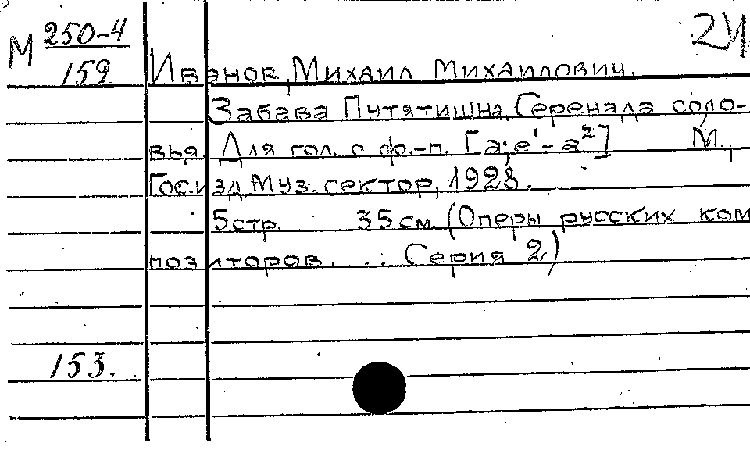 М 250-4
159
24
Иванов, Михаил Михайлович.
Забава Путятишна. Серенада соло-
вья. Для гол. с ф.-п. [а; е¹-а²] М.,
Гос. изд. Муз. сектор, 1928.
5 стр. 35 см. (Оперы русских ком
позиторов. ... Серия 2.)
153.